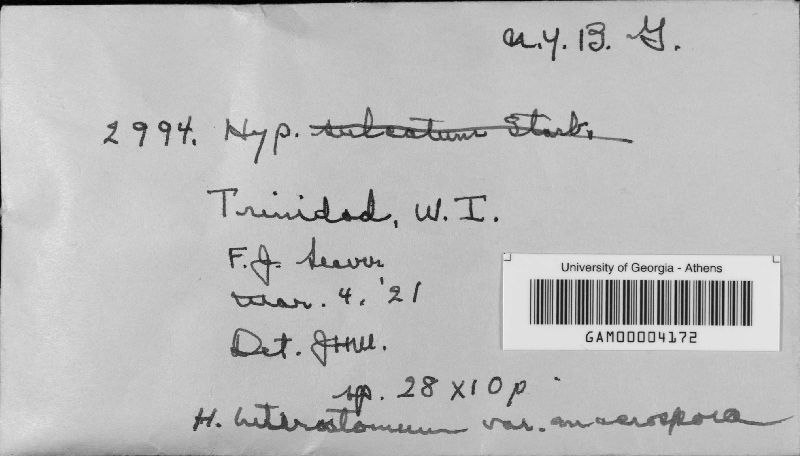 N.Y.B.G.
2994. Hyp. sulcatum Starb.
Trinidad, W.I.
F.J. Seaver
Mar. 4. '21
University of Georgia - Athens
GAM00004172
Det. JHM.
sp. 28 x 10 µ
H. heterostomum var. macrospora